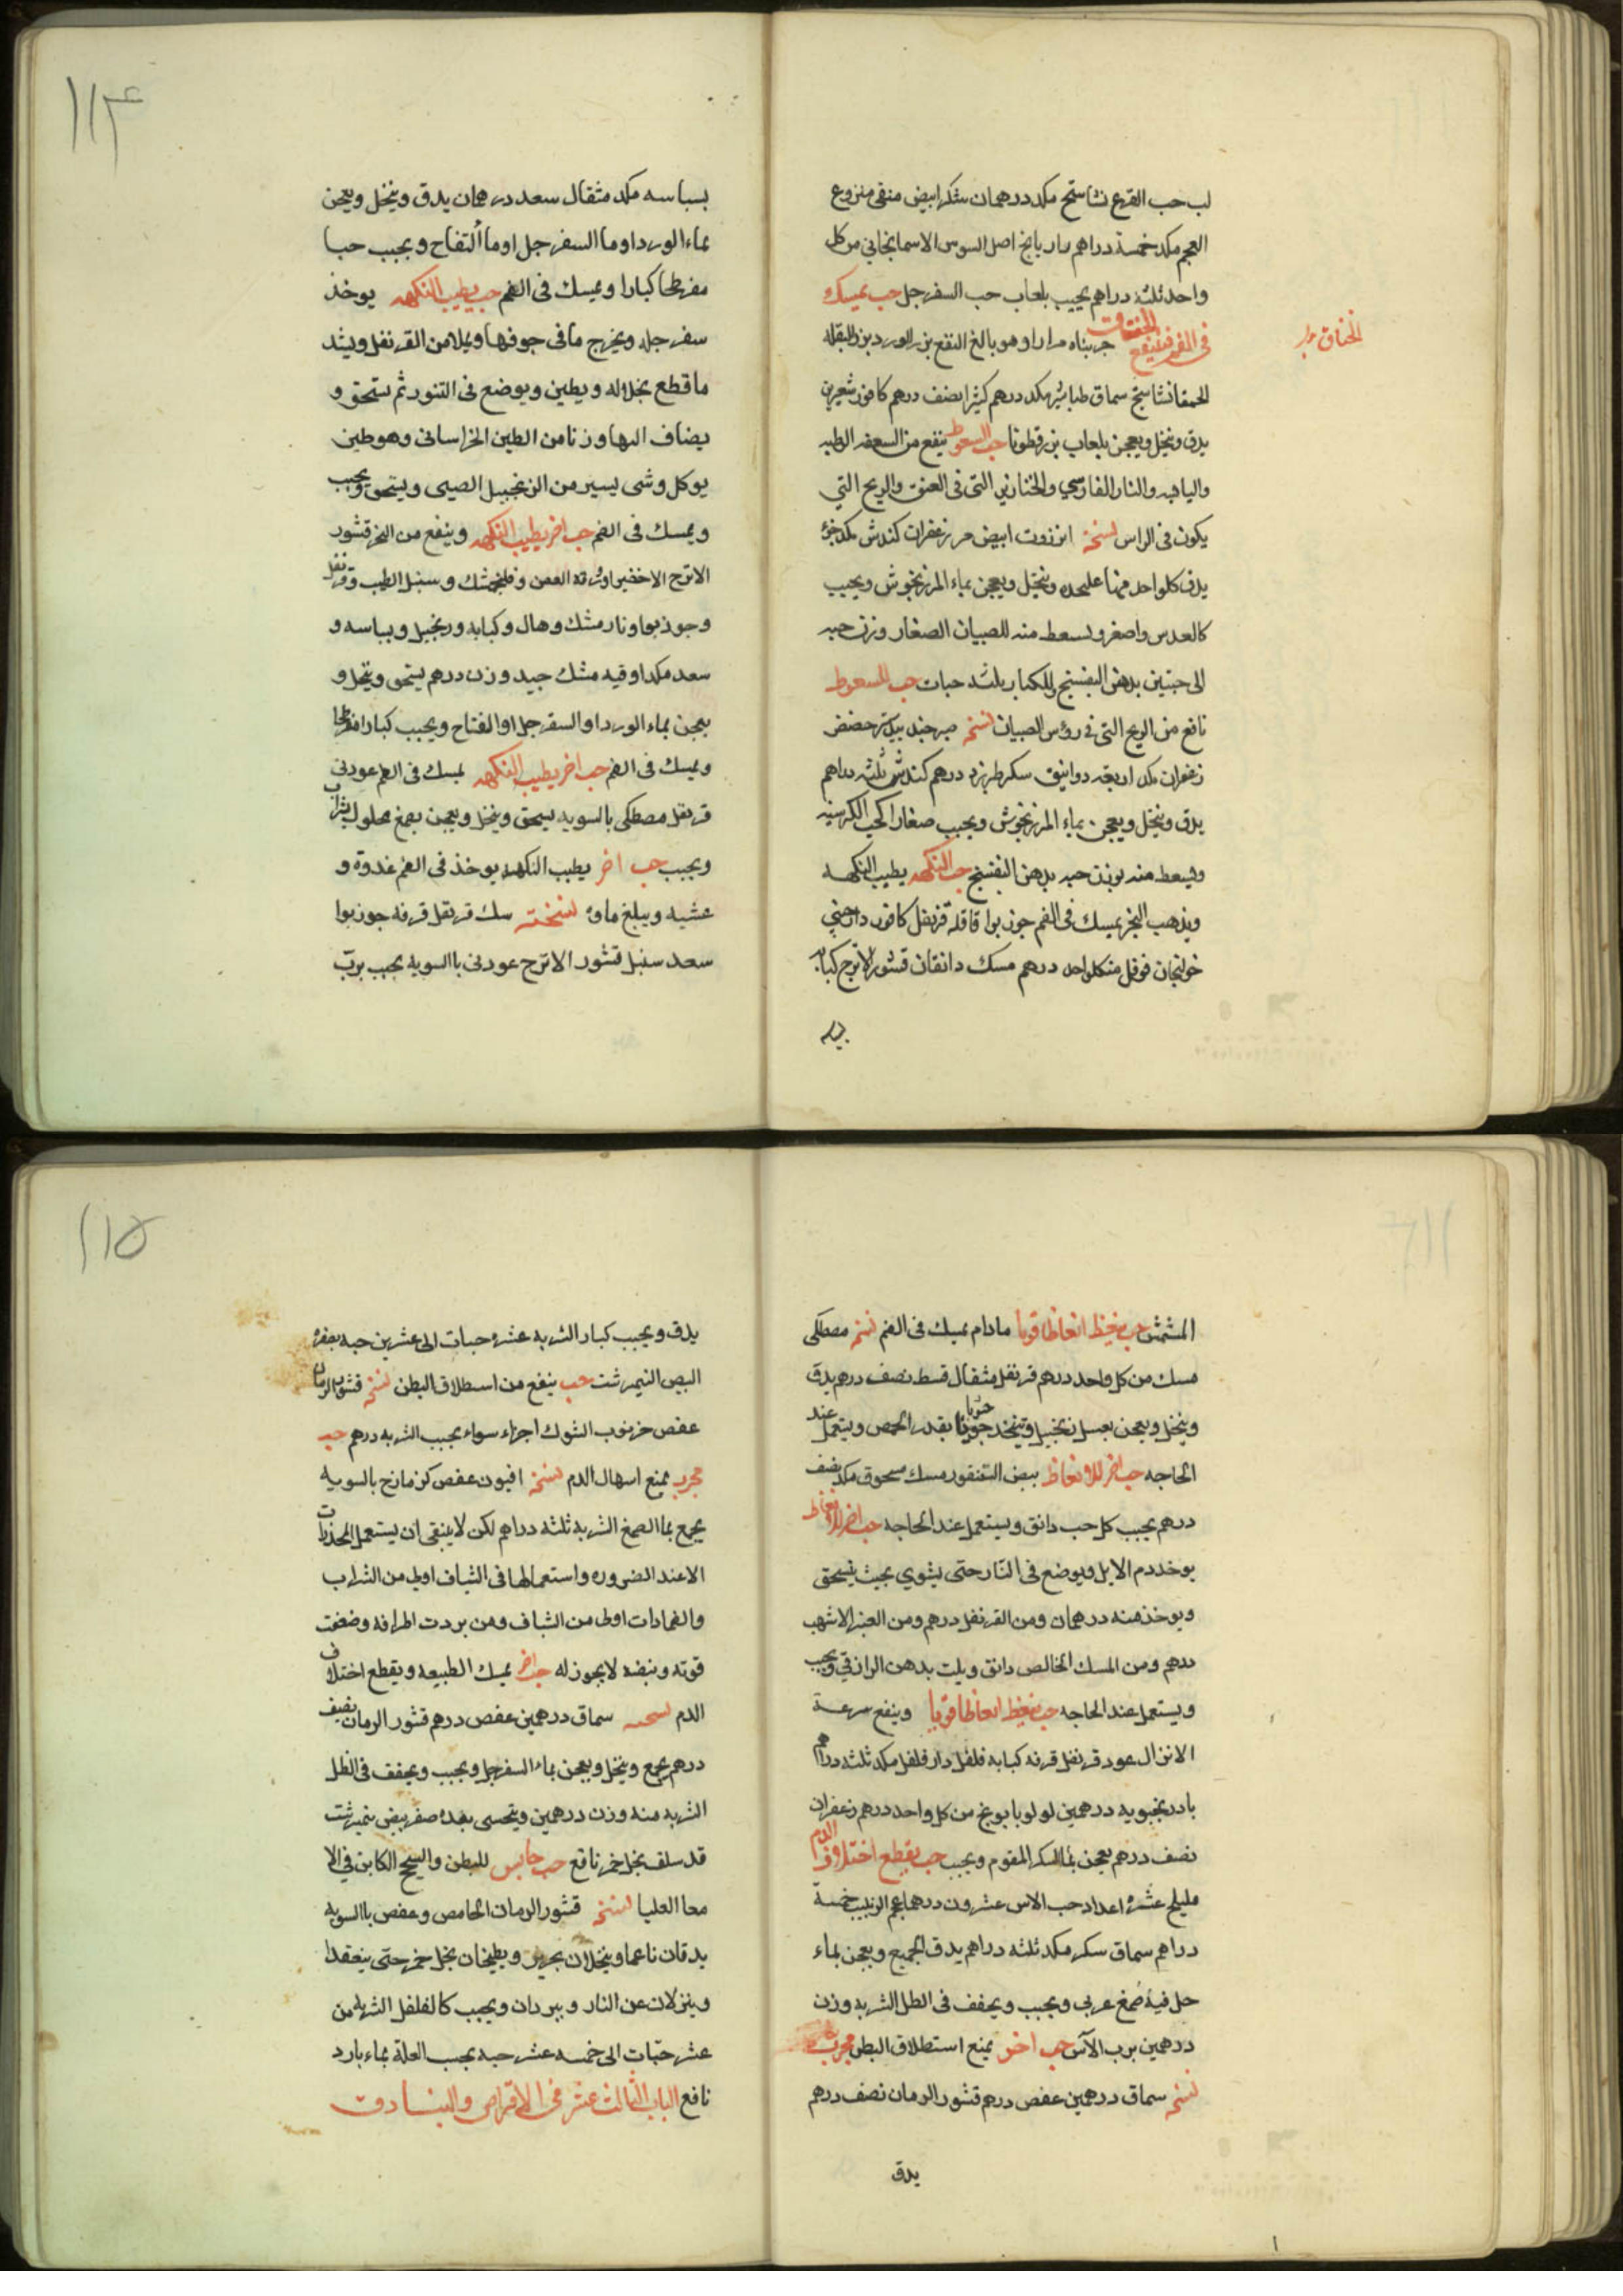 لب حب القرع نشاستج مكد درهمان سكر ابيض منقى منزوع
العجم مكد خمسة دراهم رازيانج اصل السوس الاسمانجاني من كل
واحد ثلثه دراهم يحبب بلعاب حب السفرجل حب يمسك
في الفم فينفع الخناق جربناه مرارا وهو بالغ النفع بزر الورد بزر البقله
الخناق
الحمقا نشاستج سماق طباشير مكد درهم كثيرا نصف درهم كافور شعيرتين
يدق وينخل ويعجن بلعاب بزرقطونا حب السعوط ينفع من السعفه الرطبه
واليابسه والنار الفارسي والخنازير التى فى العنق والريح التي
يكون فى الراس نسخة انزروت ابيض مر زعفران كندش مكد جزؤ
يدق كلواحد منها عليحده وينخل ويعجن بماء المرزنجوش ويحبب
كالعدس واصغر ويسعط منه للصبيان الصغار وزن حبه
الى حبتين بدهن البنفسج وللكبار بثلثه حبات حب للسعوط
نافع من الريح التى فى رؤس الصبيان نسخه صبر جندبيدستر حضض
زعفران مكد اربعه دوانيق سكر طبرزد درهم كندش ثلثه دراهم
يدق وينخل ويعجن بماء المرزنجوش ويحبب صغارا كحب الكرسنه
ويسعط منه بوزن حبه بدهن البنفسج حب النكهه يطيب النكهه
ويذهب البخر يمسك فى الفم جوزبوا قاقله قرنفل كافور دارصيني
خولنجان فوفل من كلواحد درهم مسك دانقان قشور الاترج كبابه
بسباسه مكد مثقال سعد درهمان يدق وينخل ويعجن
بماء الورد او ما السفرجل او ما التفاح ويحبب حبا
مفرطحا كبارا ويمسك فى الفم حب يطيب النكهه يوخذ
سفرجله ويخرج ما فى جوفها ويملا من القرنفل ويشد
ما قطع بخلاله ويطين ويوضع فى التنور ثم يسحق و
يضاف اليها وزنا من الطين الخراسانى وهو طين
يوكل وشى يسير من الزنجبيل الصينى ويسحق ويحبب
ويمسك فى الفم حب اخر يطيب النكهه وينفع من البخر قشور
الاترج الاخضر وفلنجمشك وسنبل الطيب وقرنفل
وجوزبوا ونارمشك وهال وكبابه وزنجبيل وبسباسه و
سعد مكد اوقيه مشك جيد وزن درهم يسحق وينخل و
يعجن بماء الورد او السفرجل او التفاح ويحبب كبارا مفرطحا
ويمسك فى الفم حب اخر يطيب النكهه يمسك فى الفم عودنى
قرنفل مصطكى بالسويه يسحق وينخل ويعجن بصمغ محلول بشراب
ويحبب حب اخر يطيب النكهه يوخذ فى الفم غدوة و
عشيه ويبلغ ماوه نسخته سك قرنفل قرفه جوزبوا
سعد سنبل قشور الاترج عودنى باالسويه يحبب برب
المشمش حب ينعظ انعاظا قويا مادام يمسك فى الفم نسخه مصطكى
مسك من كل واحد درهم قرنفل مثقال قسط نصف درهم يدق
وينخل ويعجن بعسل زنجبيل ويتخذ حبوبا بقدر الحمص ويستعمل عند
الحاجه حب اخر للانعاظ بيض السقنقور مسك مسحوق مكد نصف
درهم يحبب كل حب دانق ويستعمل عند الحاجه حب اخر للانعاظ
يوخد دم الايل ويوضع فى النار حتى يشوي بحيث ينسحق
ويوخذ منه درهمان ومن القرنفل درهم ومن العنبر الاشهب
درهم ومن المسك الخالص دانق ويلت بدهن الرازقي ويحبب
ويستعمل عند الحاجه حب ينعظ انعاظا قويا وينفع سرعة
الانزال عود قرنفل قرفه كبابه فلفل دارفلفل مكد ثلثه دراهم
بادرنجبويه درهمين لولو بابونج من كل واحد درهم زعفران
نصف درهم يعجن بماالسكر المقوم ويحبب حب يقطع اختلاف الدم
هليلج عشره اعداد حب الاس عشرون درهما عجم الزبيب خمسة
دراهم سماق سكر مكد ثلثه دراهم يدق الجميع ويعجن بماء
حل فيه صمغ عربى ويحبب ويجفف فى الظل الشربه وزن
درهمين برب الآس حب اخر يمنع استطلاق البطن مجرب
نسخه سماق درهمين عفص درهم قشور الرمان نصف درهم
يدق
يدق ويحبب كبار الشربه عشره حبات الى عشرين حبه بصفره
البيض النيمرشت حب ينفع من اسطلاق البطن نسخه قشور الرمان
عفص خرنوب الشوك اجزاء سواء يحبب الشربه درهم حب
مجرب يمنع اسهال الدم نسخه افيون عفص كزمازج بالسويه
يجمع بماالصمغ الشربه ثلثه دراهم لكن لا ينبغى ان يستعمل المخدرات
الا عند الضروره واستعمالها فى الشياف اولى من الشراب
والضمادات اولى من الشياف ومن بردت اطرافه وضعفت
قوته ونبضه لا يجوز له حب اخر يمسك الطبيعه ويقطع اختلاف
الدم نسخه سماق درهمين عفص درهم قشور الرمان نصف
درهم يجمع وينخل ويعجن بماء السفرجل ويحبب ويجفف فى الظل
الشربه منه وزن درهمين ويتحسى بعده صفر بيض نيمرشت
قد سلف بخل خمر نافع حب حابس للبطن والسحج الكاين فى الا
معا العليا نسخه قشور الرمان الحامض وعفص باالسويه
يدقان ناعما وينخلان بحرير ويطبخان بخل خمر حتى ينعقدا
وينزلان عن النار ويبردان ويحبب كالفلفل الشربه من
عشر حبات الى خمسه عشر حبه بحسب العلة بماء بارد
نافع الباب الثالث عشر فى الاقراص والبنادق